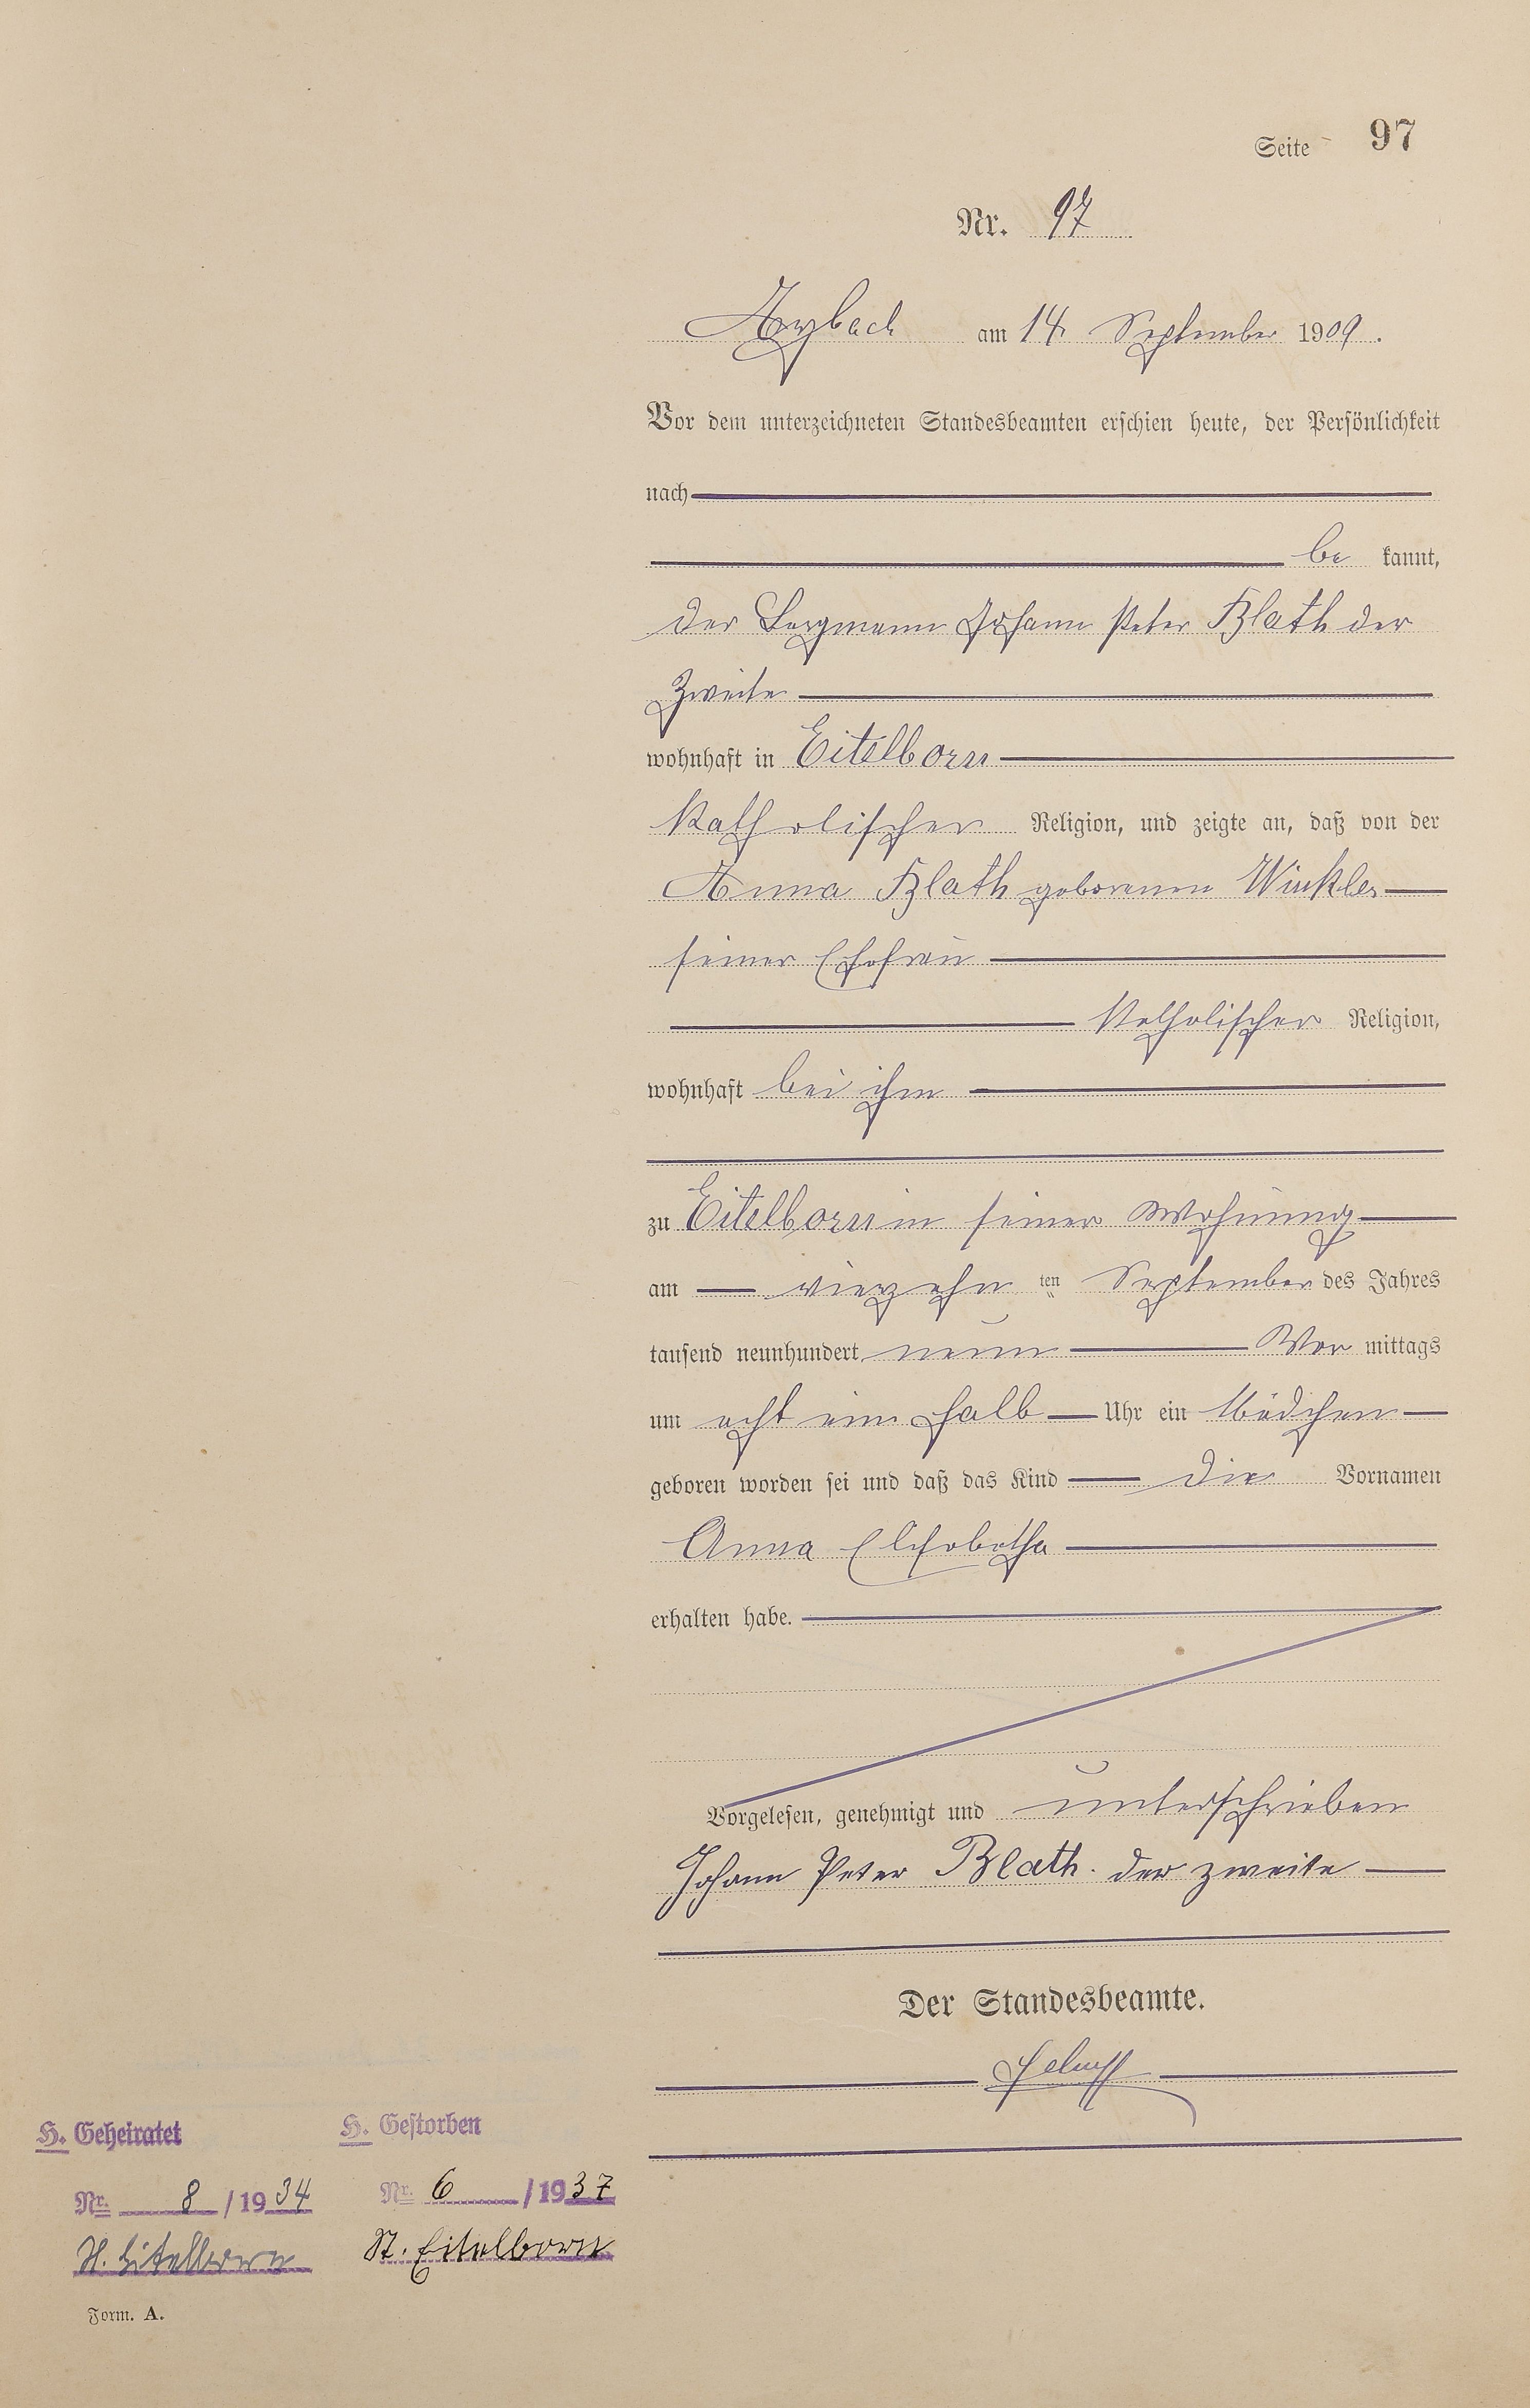 Seite 97
Nr. 97
Arzbach am 14. September 1909.
Vor dem unterzeichneten Standesbeamten erschien heute, der Persönlichkeit
nach
be kannt,
der Bergmann Johann Peter Blath der
Zweite
wohnhaft in Eitelborn
katholischer Religion, und zeigte an, daß von der
Anna Blath geborenen Winkler
seiner Ehefrau
katholischer Religion,
wohnhaft bei ihm
zu Eitelborn in seiner Wohnung
am vierzehn ten September des Jahres
tausend neunhundert neun Vor mittags
um acht ein halb Uhr ein Mädchen
geboren worden sei und daß das Kind die Vornamen
Anna Elisabetha
erhalten habe.
Vorgelesen, genehmigt und unterschrieben
Johann Peter Blath. der zweite
Der Standesbeamte.
H. Geheiratet
Nr. 8 / 1934
St. Eitelborn
H. Gestorben
Nr. 6 / 1937
St. Eitelborn
Form. A.